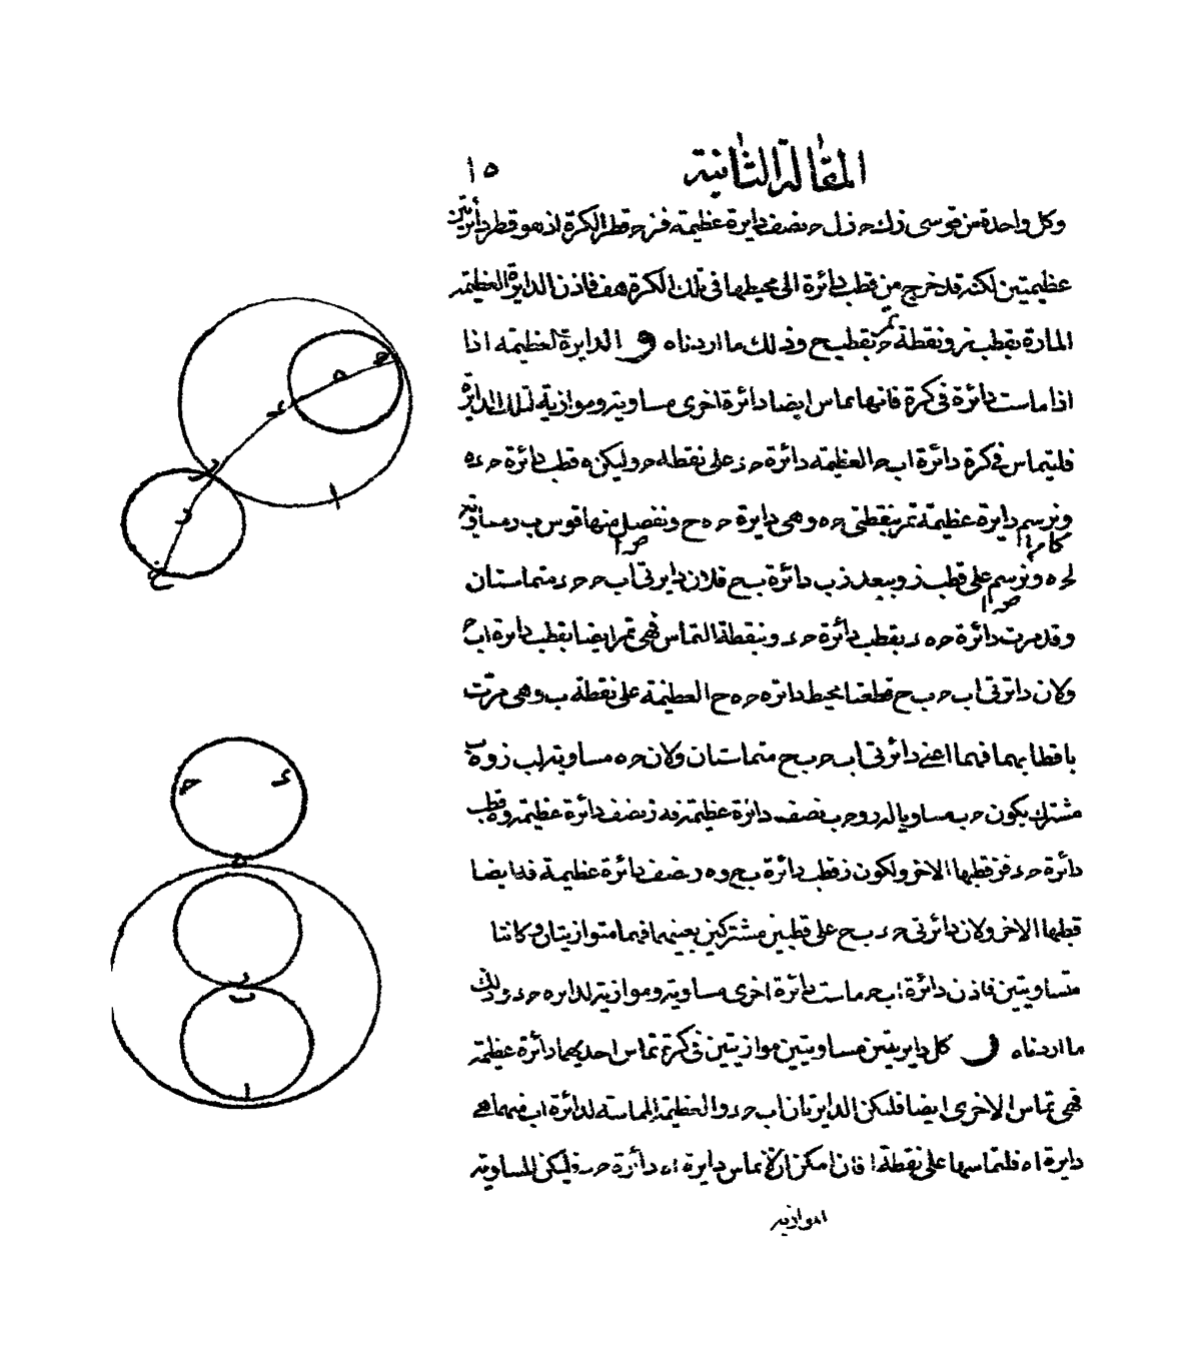 المقالة الثانية
١٥
وكل واحدة من قوسى زك ح زل ح نصف دايرة عظيمة فز ح قطر الكرة اذ هو قطر دائرتين
عظيمتين لكنه قد خرج من قطب دائرة الى محيطها فى تلك الكرة هف فاذن الدايرة العظيمة
المارة بقطب ز ونقطة ح تمر بقطب ح وذلك ما اردناه و الدايرة العظيمة اذا
اذا ماست دائرة فى كرة فانها تماس ايضا دائرة اخرى مساوية وموازية لتلك الدايرة
فليتماس فى كرة دائرة اب ح العظيمة دائرة ح ء على نقطة ح وليكن ه قطب دائرة ح ء ه
ونرسم دايرة عظيمة تمر بنقطتى ح ه وهى دايرة ح ه ح ونفصل منها قوس ب ر مساوية
لح ه ونرسم على قطب ز وببعد ز ب دائرة ب ح فلان دايرتى اب ح ح ء متماستان
وقد مرت دائرة ح ه ء بقطب دائرة ح ء وبنقطة التماس فهى تمر ايضا بقطب دايرة اب ح
ولان دائرتى اب ح ب ح قطعتا محيط دائره ح ه ح العظيمة على نقطة ب وهى مرت
باقطابهما فهما اعنى دائرتى اب ح ب ح متماستان ولان ح ه مساوية لب ز وه ب
مشترك يكون ح ب مساويا له ر وح ب نصف دائرة عظيمة فه ز نصف دائرة عظيمة وه قطب
دائرة ح ء فز قطبها الاخر ولكون ز قطب دائرة ب ح وه ر نصف دائرة عظيمة فه ايضا
قطبها الاخر ولان دائرتى ح ء ب ح على قطبين مشتركين بعينهما فهما متوازيتان وكانتا
متساويتين فاذن دائرة اب ح ماست دائرة اخرى مساوية وموازية لدايره ح ء وذلك
ما اردناه ز كل دايرتين مساويتين موازيتين فى كرة تماس احديهما دائرة عظيمة
فهى تماس الاخرى ايضا فليكن الدايرتان اب ح ء والعظيمة المماسة لدائرة اب منهما هى
دايرة اه فلتماسها على نقطة ا فان امكن ان لا تماس دايرة اه دائرة ح ء فليكن المساوية
الموازية